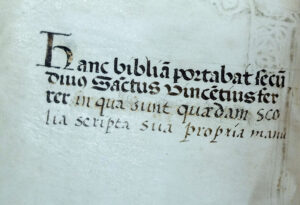 Hanc bibliā portabat secū
diuo Sāctus Vincentius fer
rer in qua sunt quædam sco
lia scripta sua propria manu